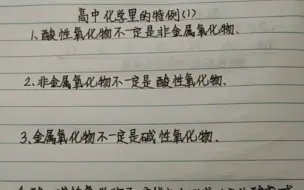 高中化学里的特例(1)
1.酸性氧化物不一定是非金属氧化物.
2.非金属氧化物不一定是酸性氧化物.
3.金属氧化物不一定是碱性氧化物.